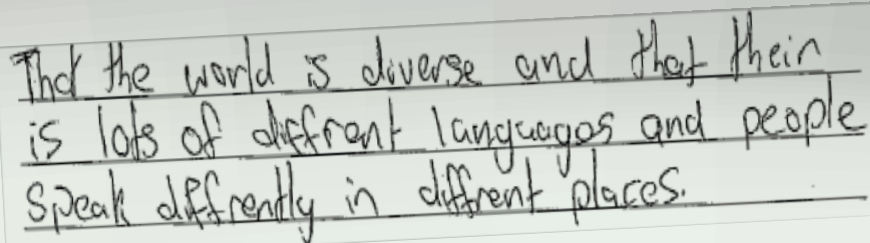 That the world is diverse and that their
is lots of diffrent languages and people
speak diffrently in diffrent places.